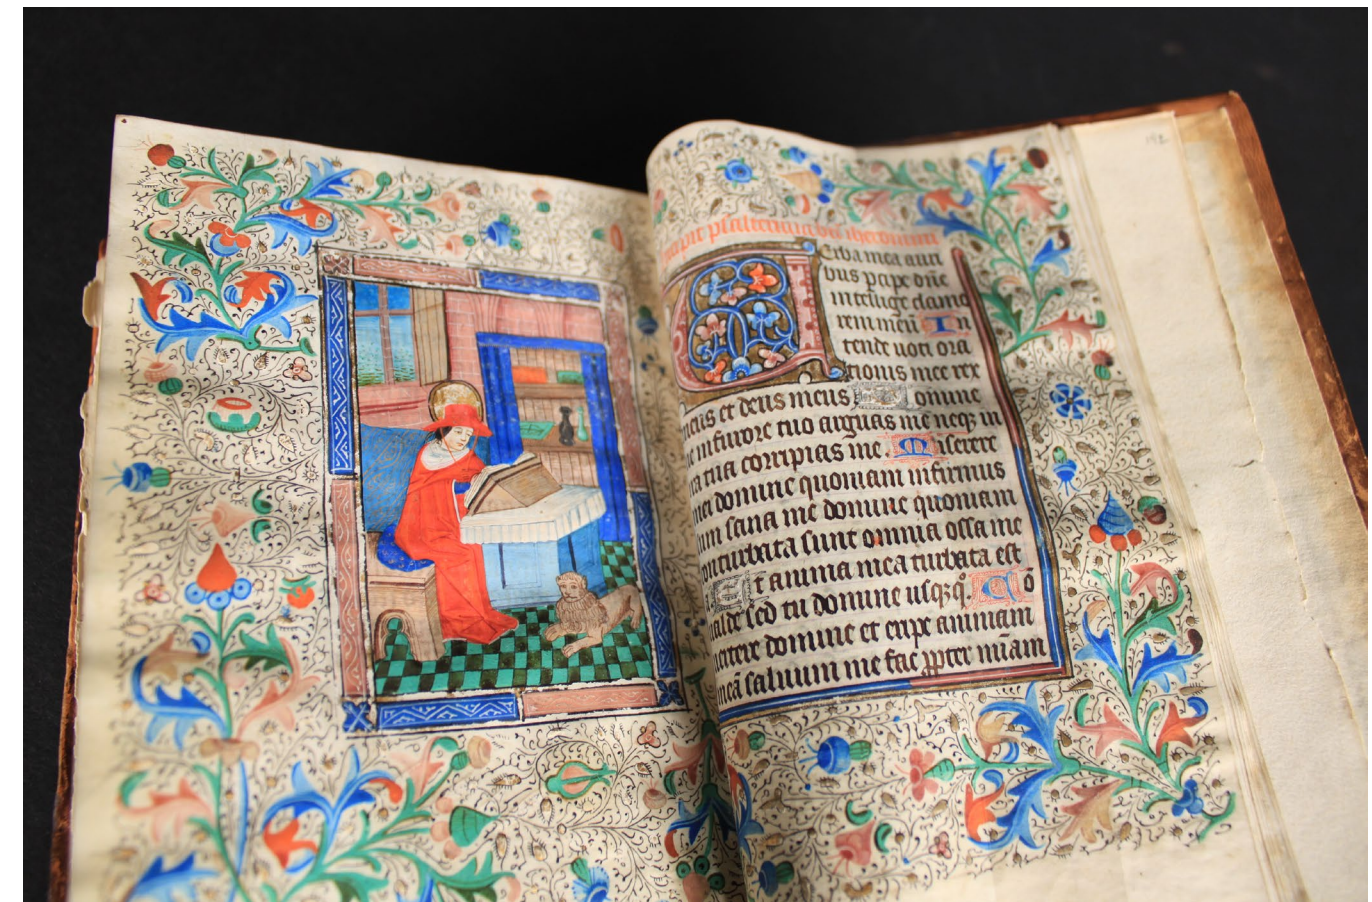 192
psalterium bti iheronimi
Erba mea auri
bus pcipe dñe
intellige clamo
rem meū In
tende uoci ora
tionis mee rex
meus et deus meus omine
ne in furore tuo arguas me neqz in
ira tua corripias me Miserere
mei domine quoniam infirmus
sum sana me domine quoniam
conturbata sunt omnia ossa me
Et anima mea turbata est
ualde sed tu domine usqzqᵒ Cō
uertere domine et eripe animam
meā saluum me fac ꝓpter mīam